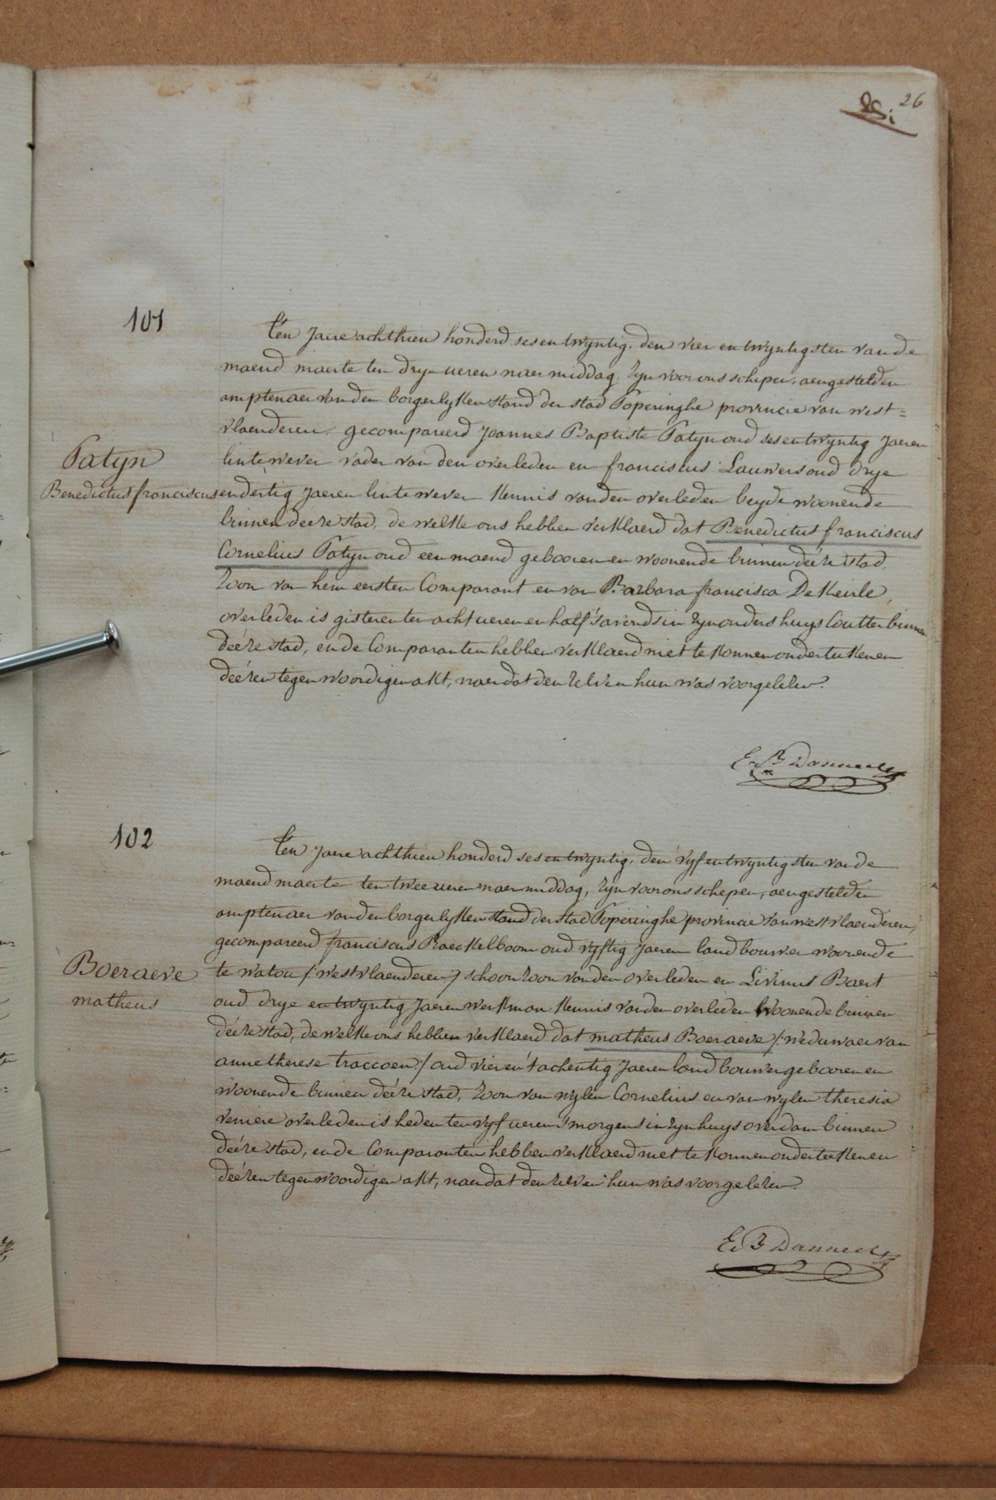 26
101
Patyn
Benedictus franciscus
Ten Jaere achthien honderd sesentwyntig, den vier entwyntigsten van de
maend maerte ten drye ueren naermiddag, Zyn voor ons schepen, aengestelden
amptenaer van den borgerlyken stand der stad Poperinghe provincie van west=
vlaenderen gecompareerd Joannes Baptiste Patyn oud sesentwyntig Jaeren
lintewever vader van den overleden en franciscus Lauwers oud drye
endertig Jaeren lintewever kennis van den overleden beyde woonende
binnen deéze stad, de welke ons hebben verklaerd dat Benedictus franciscus
Cornelius Patyn oud een maend gebooren en woonende binnen deéze stad
Zoon van hem eersten Comparant en van Barbara francisca De Keirle,
overleden is gisteren ten acht ueren en half s'avends in Zyn ouders huys binnen
deéze stad, en de Comparanten hebben verklaerd niet te konnen onderteekenen
deézen tegenwoordigen akt, naer dat den zelven hun was voorgelezen.
102
Boeraeve
matheus
Ten Jaere achthien honderd sesentwyntig, den vyf entwyntigsten van de
maend maerte ten twee ueren naermiddag, Zyn voor ons schepen, aengestelden
amptenaer van den borgerlyken stand der stad Poperinghe provincie van westvlaenderen,
gecompareerd franciscus Raeckelboom oud vyftig Jaeren landbouwer woonende
te watou /westvlaenderen/ schoonzoon van den overleden en Livinus Baert
oud drye entwyntig Jaeren werkman kennis van den overleden woonende binnen
deéze stad, de welke ons hebben verklaerd dat matheus Boeraeve /weduwaer van
anne therese traccoen/ oud vier en t'achentig Jaeren landbouwer gebooren en
woonende binnen deéze stad, Zoon van wylen Cornelius en van wylen theresia
veniere overleden is heden ten vyf ueren s'morgens in Zyn huys overdam binnen
deéze stad, en de Comparanten hebben verklaerd niet te konnen onderteekenen
deézen tegenwoordigen akt, naer dat den zelven hun was voorgelezen.